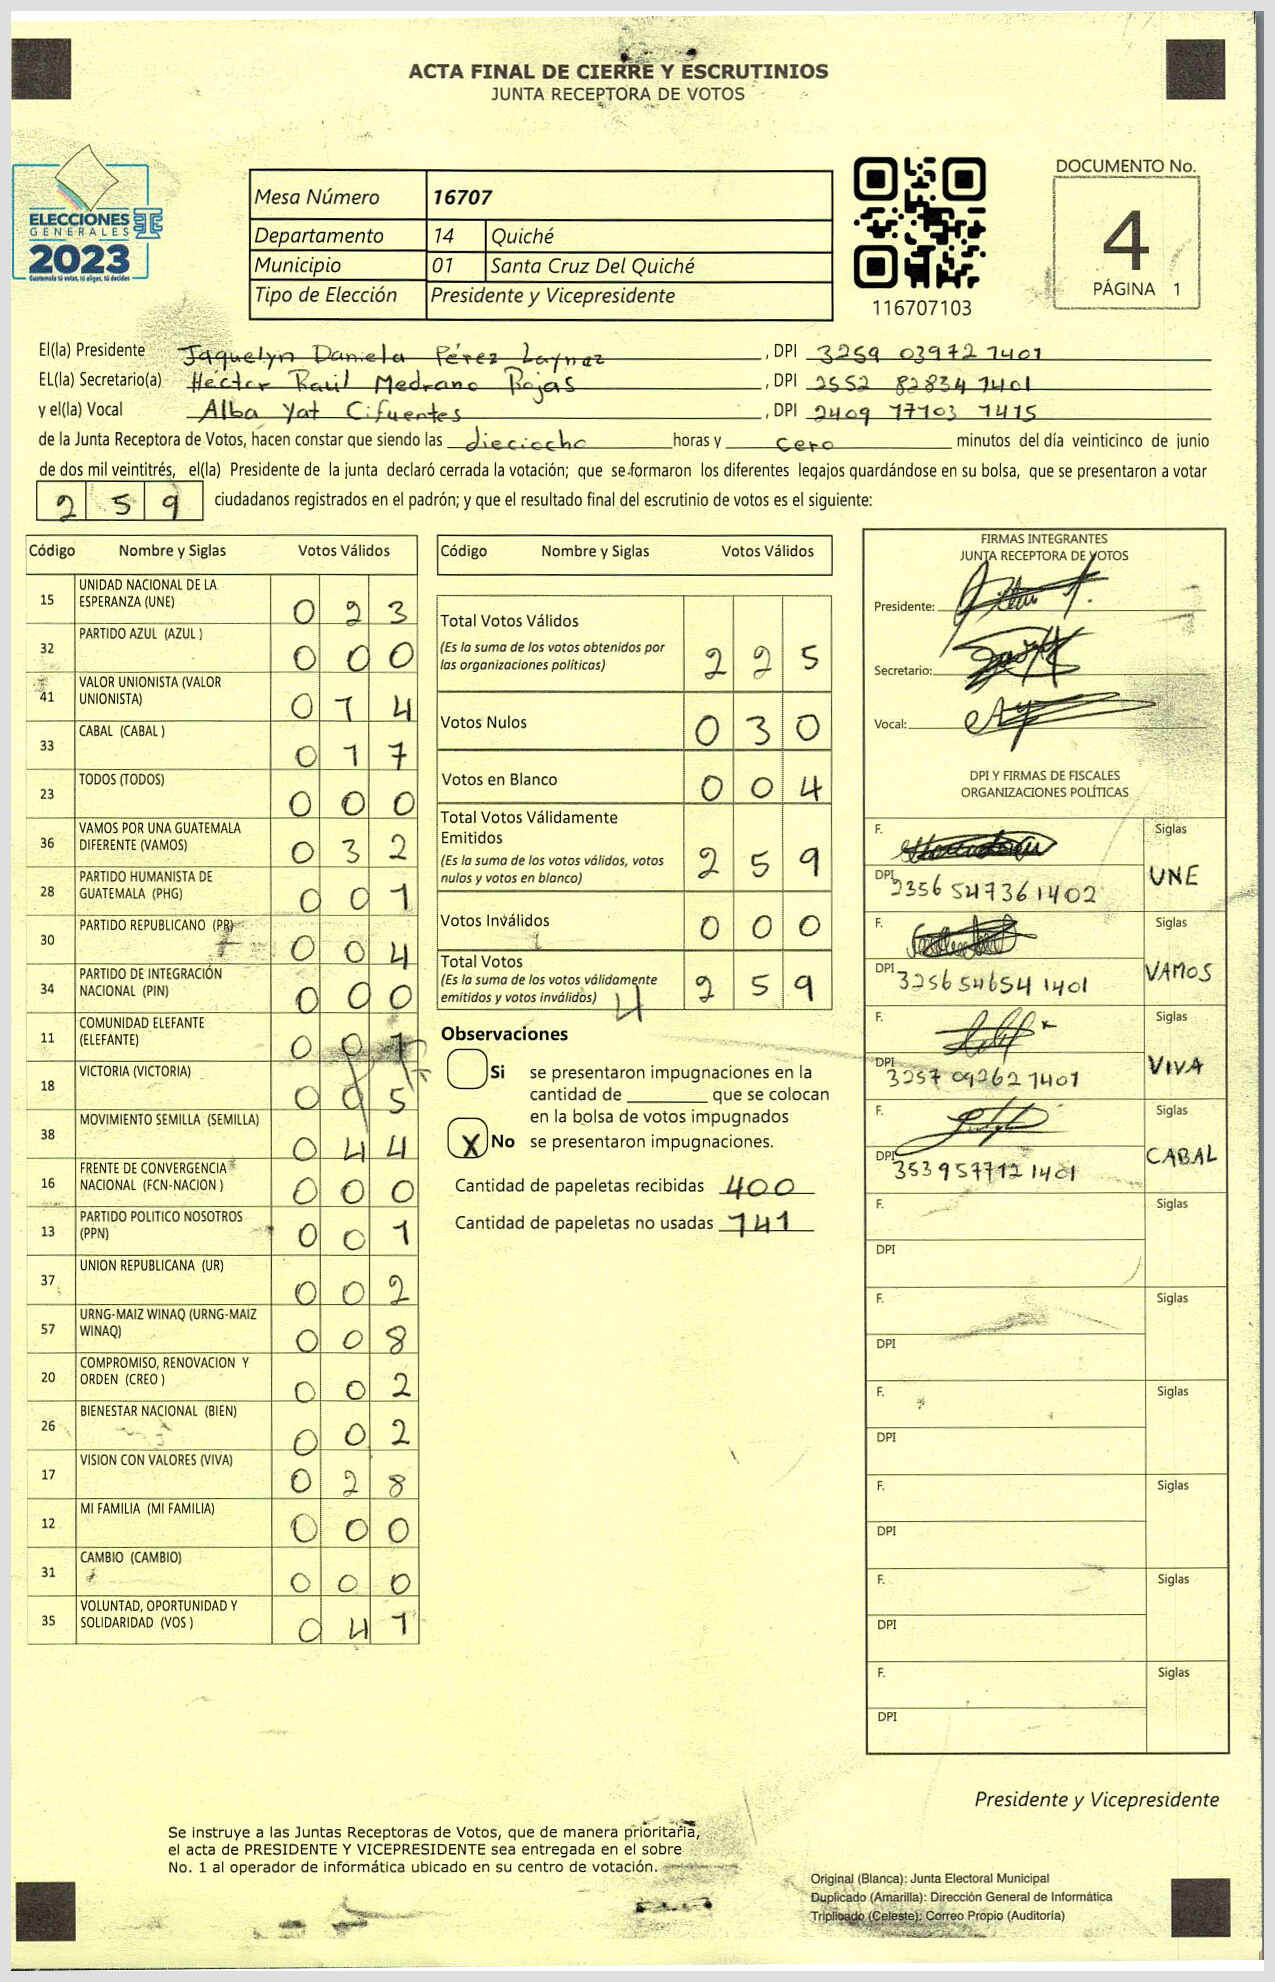 ACTA FINAL DE CIERRE Y ESCRUTINIOS
JUNTA RECEPTORA DE VOTOS
ELECCIONES
GENERALES
2023
Guatemala tú votas, tú eliges, tú decides
Mesa Número 16707
Departamento 14 Quiché
Municipio 01 Santa Cruz Del Quiché
Tipo de Elección Presidente y Vicepresidente
116707103
DOCUMENTO No.
4
PÁGINA 1
El(la) Presidente Jaquelyn Daniela Pérez Laynez, DPI 3259 03972 1401
EL(la) Secretario(a) Héctor Raúl Medrano Rojas, DPI 2552 82834 1401
y el(la) Vocal Alba Yat Cifuentes, DPI 2409 17103 1415
de la Junta Receptora de Votos, hacen constar que siendo las dieciocho horas y cero minutos del día veinticinco de junio
de dos mil veintitrés, el(la) Presidente de la junta declaró cerrada la votación; que se formaron los diferentes legajos quardándose en su bolsa, que se presentaron a votar
259 ciudadanos registrados en el padrón; y que el resultado final del escrutinio de votos es el siguiente:
Código Nombre y Siglas Votos Válidos
15 UNIDAD NACIONAL DE LA ESPERANZA (UNE) 023
32 PARTIDO AZUL (AZUL ) 000
41 VALOR UNIONISTA (VALOR UNIONISTA) 014
33 CABAL (CABAL ) 017
23 TODOS (TODOS) 000
36 VAMOS POR UNA GUATEMALA DIFERENTE (VAMOS) 032
28 PARTIDO HUMANISTA DE GUATEMALA (PHG) 001
30 PARTIDO REPUBLICANO (PR) 004
34 PARTIDO DE INTEGRACIÓN NACIONAL (PIN) 000
11 COMUNIDAD ELEFANTE (ELEFANTE) 001
18 VICTORIA (VICTORIA) 005
38 MOVIMIENTO SEMILLA (SEMILLA) 044
16 FRENTE DE CONVERGENCIA NACIONAL (FCN-NACION ) 000
13 PARTIDO POLITICO NOSOTROS (PPN) 001
37 UNION REPUBLICANA (UR) 002
57 URNG-MAIZ WINAQ (URNG-MAIZ WINAQ) 008
20 COMPROMISO, RENOVACION Y ORDEN (CREO ) 002
26 BIENESTAR NACIONAL (BIEN) 002
17 VISION CON VALORES (VIVA) 028
12 MI FAMILIA (MI FAMILIA) 000
31 CAMBIO (CAMBIO) 000
35 VOLUNTAD, OPORTUNIDAD Y SOLIDARIDAD (VOS ) 041
Código Nombre y Siglas Votos Válidos
Total Votos Válidos 225
(Es la suma de los votos obtenidos por
las organizaciones políticas)
Votos Nulos 030
Votos en Blanco 004
Total Votos Válidamente
Emitidos 259
(Es la suma de los votos válidos, votos
nulos y votos en blanco)
Votos Inválidos 000
Total Votos 259
(Es la suma de los votos válidamente
emitidos y votos inválidos)
4
Observaciones
Si se presentaron impugnaciones en la
cantidad de ________ que se colocan
en la bolsa de votos impugnados
X No se presentaron impugnaciones.
Cantidad de papeletas recibidas 400
Cantidad de papeletas no usadas 141
FIRMAS INTEGRANTES
JUNTA RECEPTORA DE VOTOS
Presidente:
Secretario:
Vocal:
DPI Y FIRMAS DE FISCALES
ORGANIZACIONES POLÍTICAS
F. Siglas
DPI 2356 54736 1402 UNE
F. Siglas
DPI 3256 54654 1401 VAMOS
F. Siglas
DPI 3257 09262 1401 VIVA
F. Siglas
DPI 353957712 1401 CABAL
F. Siglas
DPI
F. Siglas
DPI
F. Siglas
DPI
F. Siglas
DPI
F. Siglas
DPI
F. Siglas
DPI
Presidente y Vicepresidente
Se instruye a las Juntas Receptoras de Votos, que de manera prioritaria,
el acta de PRESIDENTE Y VICEPRESIDENTE sea entregada en el sobre
No. 1 al operador de informática ubicado en su centro de votación.
Original (Blanca): Junta Electoral Municipal
Duplicado (Amarilla): Dirección General de Informática
Triplicado (Celeste): Correo Propio (Auditoría)